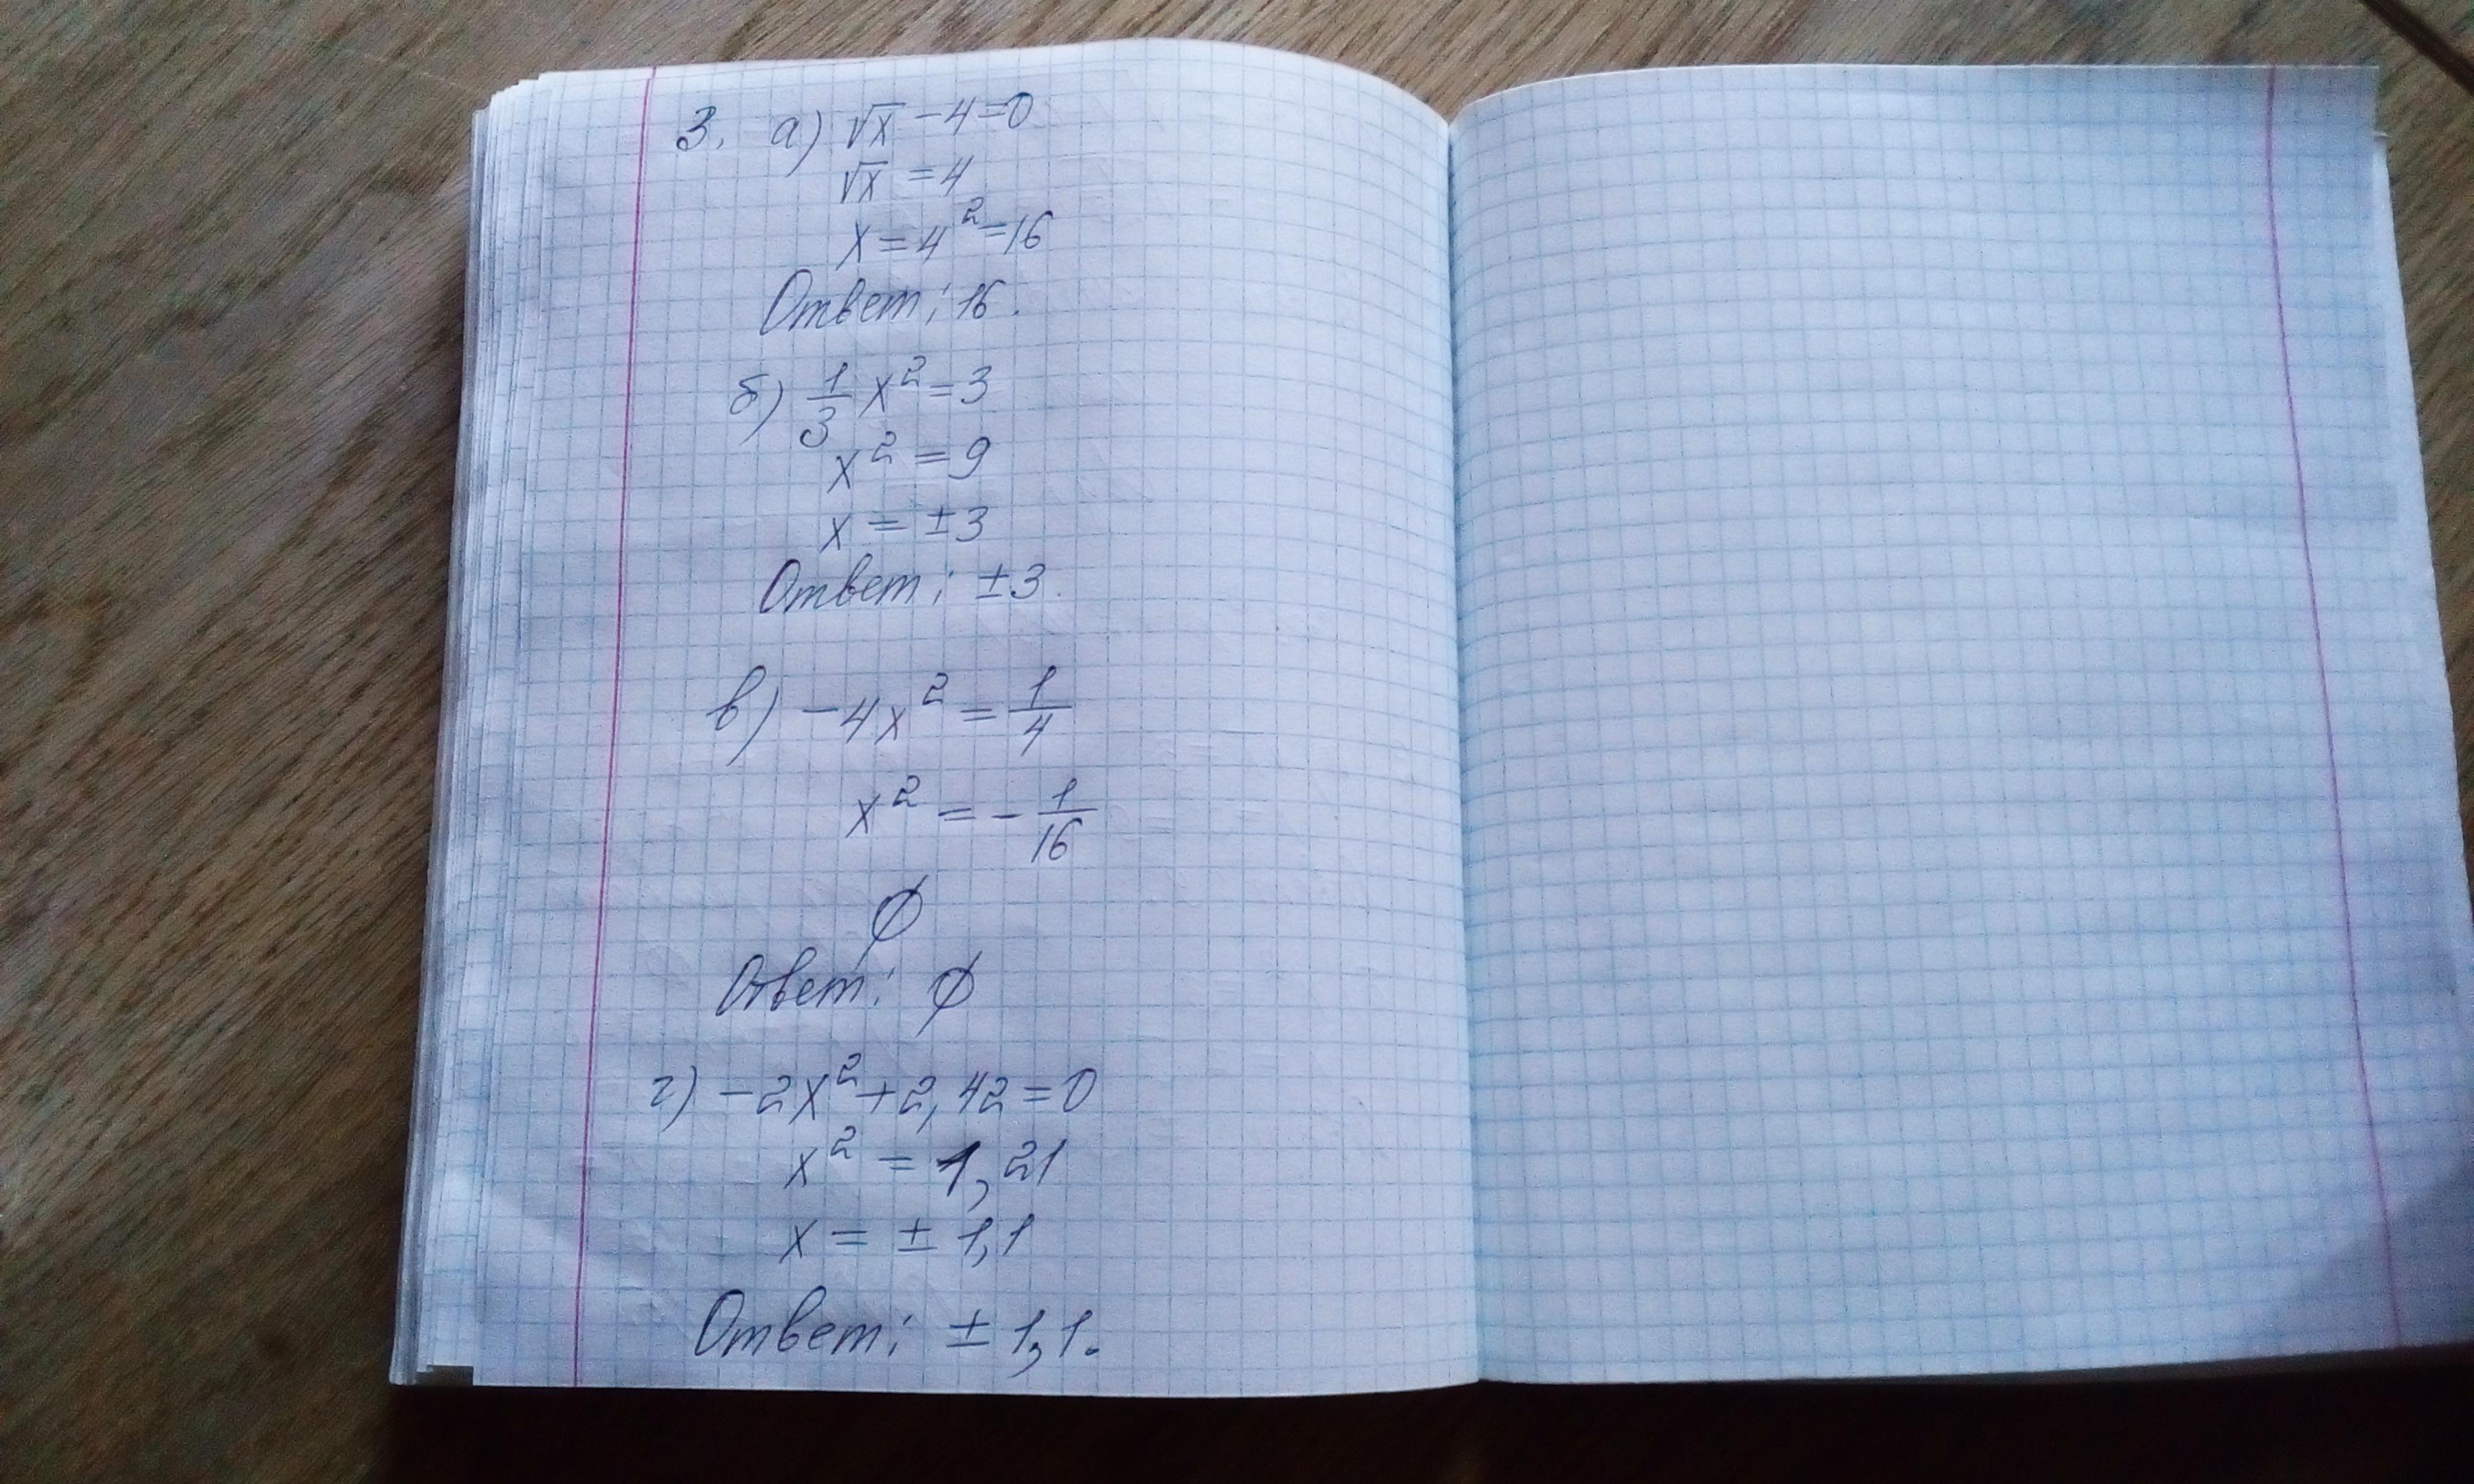 3. а) √x - 4 = 0
√x = 4
x = 4² = 16
Ответ: 16.
б) 1/3 x² = 3
x² = 9
x = ±3
Ответ: ±3.
в) -4x² = 1/4
x² = - 1/16
∅
Ответ: ∅
г) -2x² + 2,42 = 0
x² = 1,21
x = ± 1,1
Ответ: ± 1,1.